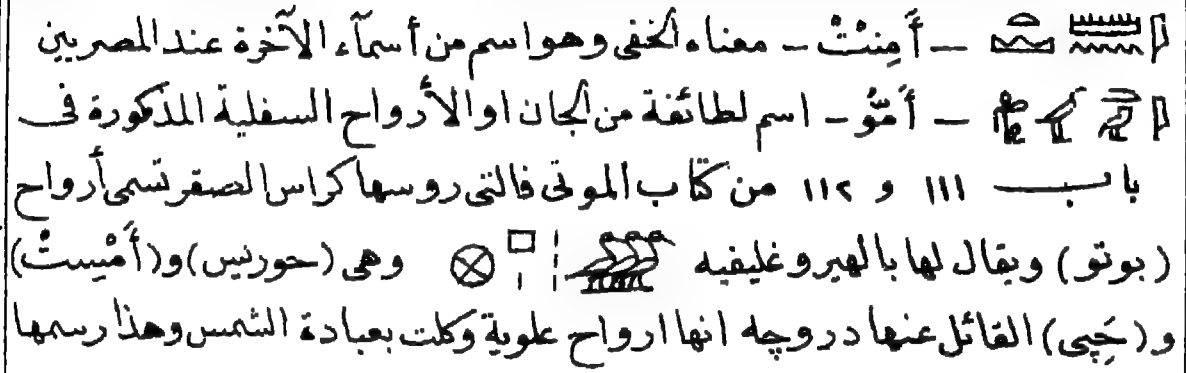 𓇋𓏠𓈖𓏏𓈉 — أَمِنتْتْ — معناه الخفى وهو اسم من أسمآء الآخرة عند المصريين
— أَمُّو — اسم لطائفة من الجان او الأرواح السفلية المذكورة فى
باب ١١١ و ١١٢ من كتاب الموتى فالتى روسها كراس الصقر تسمى أرواح
(بوتو) ويقال لها بالهيروغليفيه وهى (حورتيس) و(أَمْيِستْ)
و(حَپِى) القائل عنها دروچه انها ارواح علوية وكلت بعبادة الشمس وهذا رسمها